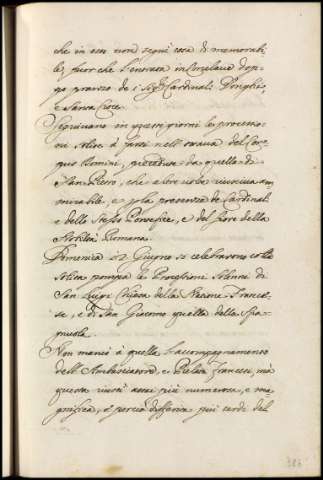 che in essa non seguì cosa di memorabi-
le, fuor che l'entrata in Conclave dop-
po pranzo de i Sig.ri Cardinali Borghi,
e Santa Croce.
Seguivano in questi giorni le processio-
ni solite à farsi nell'ottava del Cor-
pus Domini, precedute da quella di
San Pietro, che al solito riuscì am-
mirabile, e p la presenza de Cardinali
e dello stesso Pontefice, e del fiore della
Nobiltà Romana.
Domenica 12 Giugno si celebravono colla
solita pompa le Processioni solenni di
San Luigi Chiesa della Nazione France-
se, e di San Giacomo quella della Spa-
gnuola.
Non mancò à quella l'accompagnamento
dell'Ambasciatore, e Prelati Francesi, mà
questa riuscì assai più numerosa, e ma-
gnifica, e perciò differita più tardi del
386